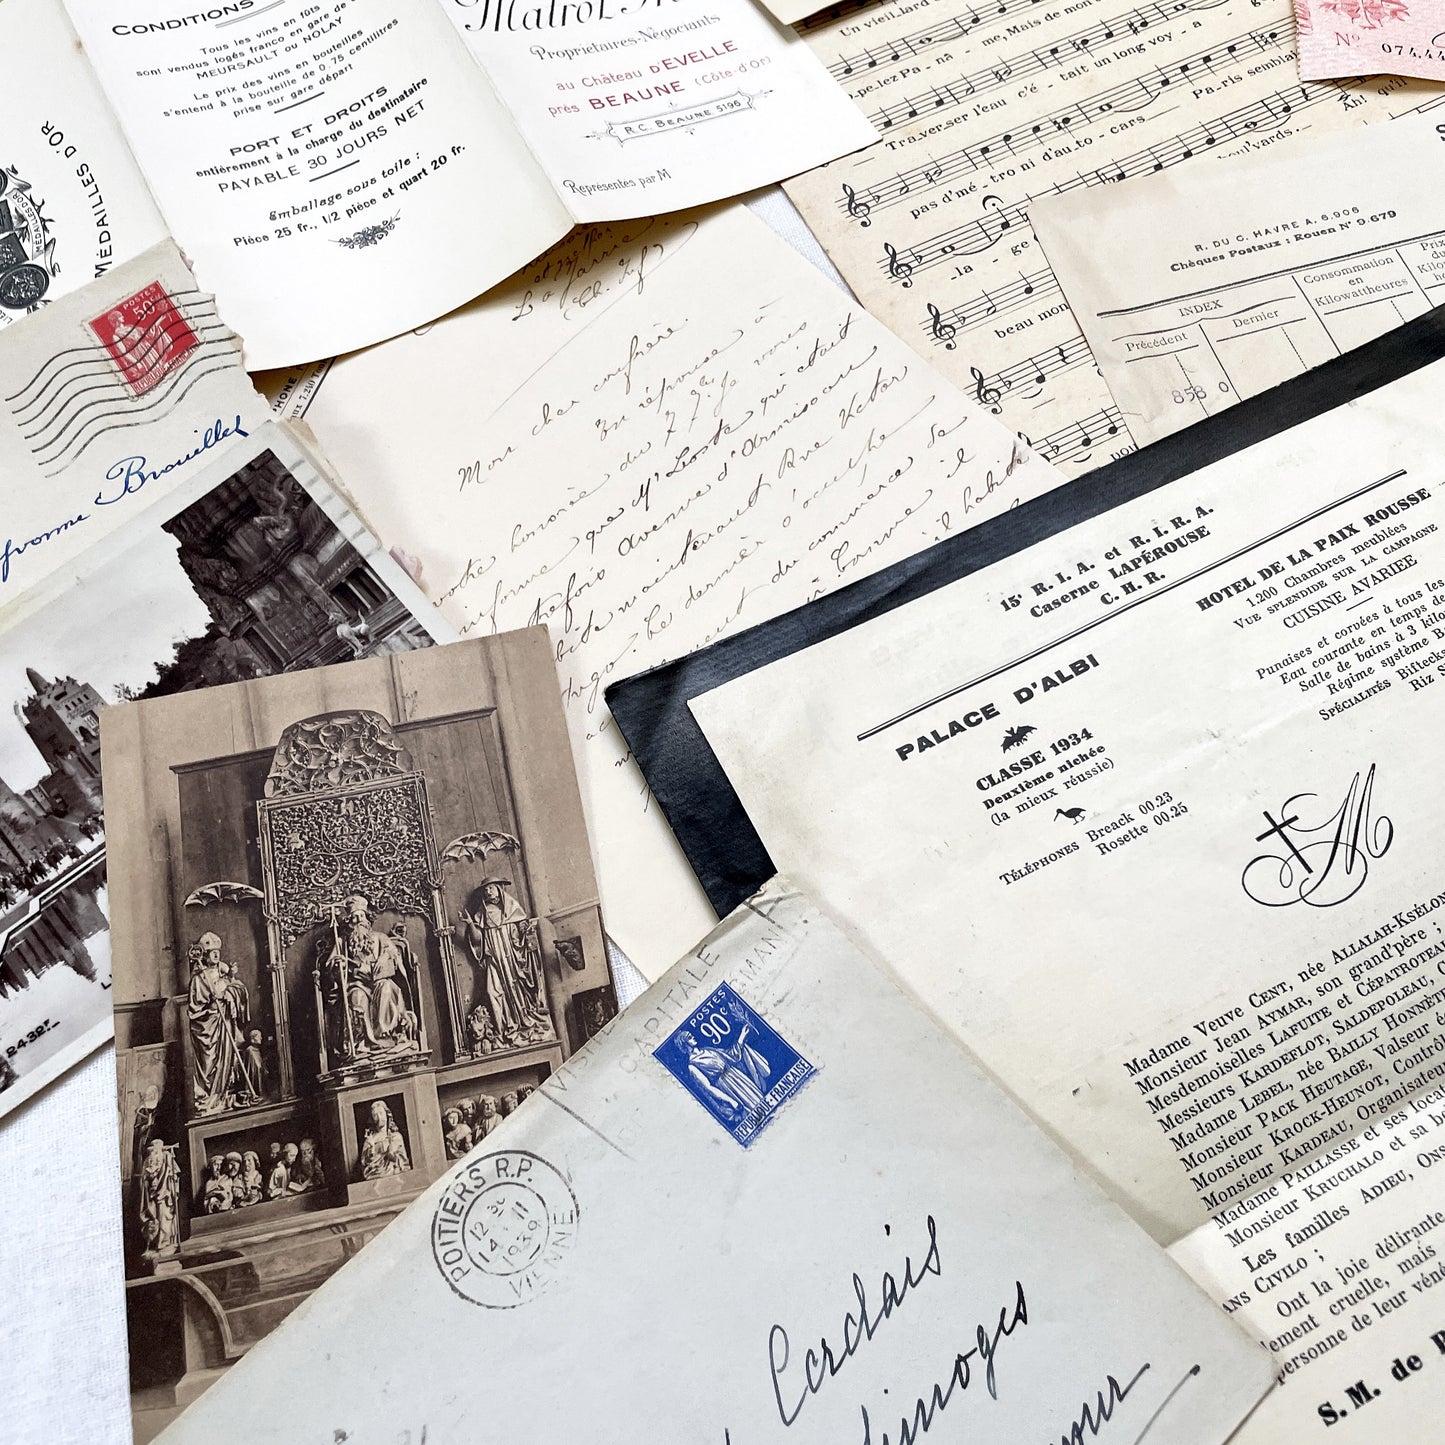 CONDITIONS
Tous les vins en fûts
sont vendus logés franco en gare de
MEURSAULT ou NOLAY
Le prix des vins en bouteilles
s'entend à la bouteille de 0,75 centilitres
prise sur gare départ
PORT ET DROITS
entièrement à la charge du destinataire
PAYABLE 30 JOURS NET
Emballage sous toile :
Pièce 25 fr., 1/2 pièce et quart 20 fr.
MÉDAILLES D'OR
Propriétaires-Négociants
au Château d'EVELLE
près BEAUNE (Côte-d'Or)
R.C. BEAUNE 5196
Représentés par M
Un vieil-lard
Mais de mon
-pe-lez Pa - na - me, Mais de mon
Tra-ver-ser l'eau c'é - tait un long voy - a
pas d'mé - tro ni d'au-to - cars
Pa-ris semblai
Ah! qu'il
boul'vards.
-la - ge
beau mon
pou
N° 0744
R. DU C. HAVRE A. 6.906
Chèques Postaux : Rouen N° 9.679
INDEX
Précédent
Dernier
Consommation
en
Kilowattheures
Prix
du
Kilo
858 0
POSTES
50c
REPUBLIQUE FRANÇAISE
Yvonne Brouillet
Mon cher confrère.
En réponse à
votre honorée du 7 je vous
informe que Mr Lioste qui était
autrefois avenue d'Armisacau
habite maintenant Rue Victor
Hugo. Ce dernier s'occupe
du commerce de
il habite
2432.-
15e R. I. A. et R. I. R. A.
Caserne LAPÉROUSE
C. H. R.
HOTEL DE LA PAIX ROUSSE
1.200 Chambres meublées
VUE SPLENDIDE SUR LA CAMPAGNE
CUISINE AVARIÉE
Punaises et corvées à tous les
Eau courante en temps de
Salle de bains à 3 kilo
Régime système B
SPÉCIALITÉS Biftecks
Riz S
PALACE D'ALBI
CLASSE 1934
Deuxième nichée
(la mieux réussie)
TÉLÉPHONES Breack 00.23
Rosette 00.25
M
Madame Veuve CENT, née ALLALAH-KSÉLON
Monsieur Jean AYMAR, son grand'père ;
Mesdemoiselles LAFUITE et CÉPATROTEA
Messieurs KARDEFLOT, SALDEPOLEAU, C
Madame LEBEL, née BAILLY HONNÊT
Monsieur PACK HEUTAGE, Valseur é
Monsieur KROCK-HEUNOT, Contrôl
Monsieur KARDEAU, Organisateur
Madame PAILLASSE et ses locat
Monsieur KRUCHALO et sa b
Les familles ADIEU, ONS
ANS CIVILO ;
Ont la joie délirante
lement cruelle, mais
personne de leur véné
S. M. de
CAPITALE
POSTES
90c
REPUBLIQUE-FRANÇAISE
POITIERS R.P.
12 30
14 II
1939
VIENNE
Cerclais
Limoges